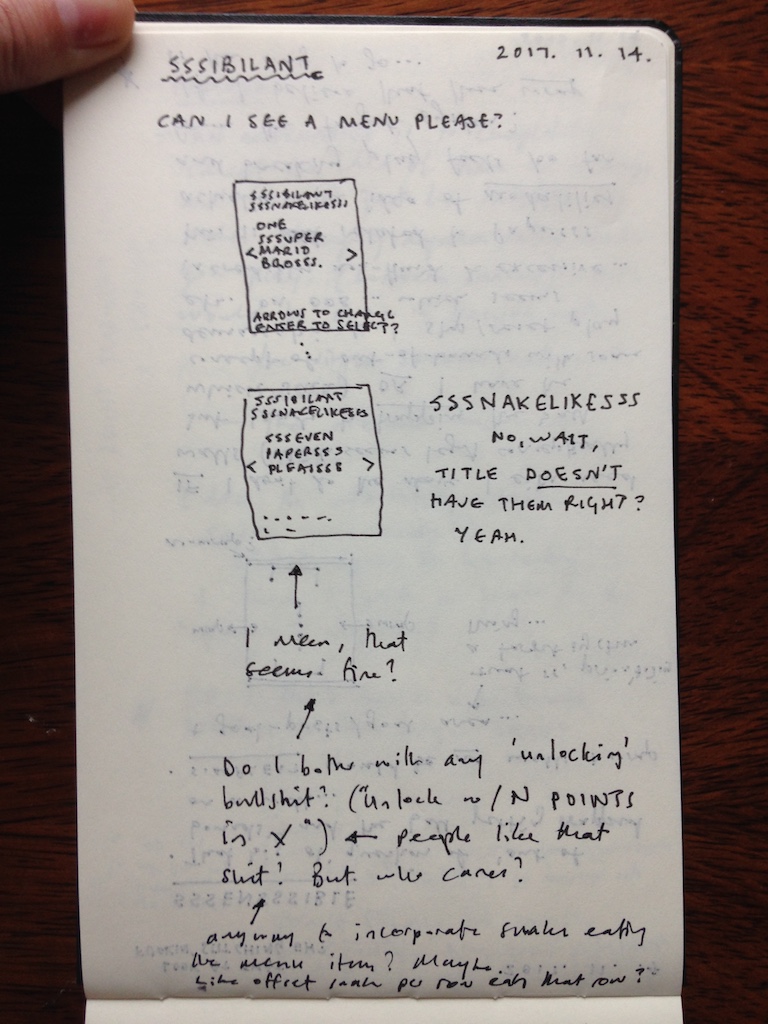 SSSIBILANT
2017. 11. 14.
CAN I SEE A MENU PLEASE?
SSSIBILANT
SSSNAKELIKESSS
ONE
SSSUPER
< MARIO >
BROSSS.
ARROWS TO CHANGE
ENTER TO SELECT?
SSSIBILANT
SSSNAKELIKESSS
SSSEVEN
PAPERSSS
< PLEASSSE >
SSSNAKELIKESSS
NO, WAIT,
TITLE DOESN'T
HAVE THEM RIGHT?
YEAH.
I mean, that
seems fine?
Do I bother with any 'unlocking'
bullshit? ("Unlock w/ N POINTS
in X") ← people like that
shit? But who cares?
anyway to incorporate snake eating
the menu item? Maybe.
Like offset snake per row eats that row?